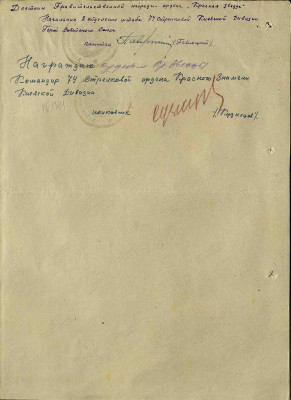 Достоин Правительственной награды ордена "Красная звезда"
Начальник 2 отделения штаба 77 Стрелковой Киевской Дивизии
Герой Советского Союза
капитан
Награждаю орденом Кр Звезда
Командир 74 Стрелковой ордена Красного Знамени
Киевской Дивизии
полковник /Кузнецов/.